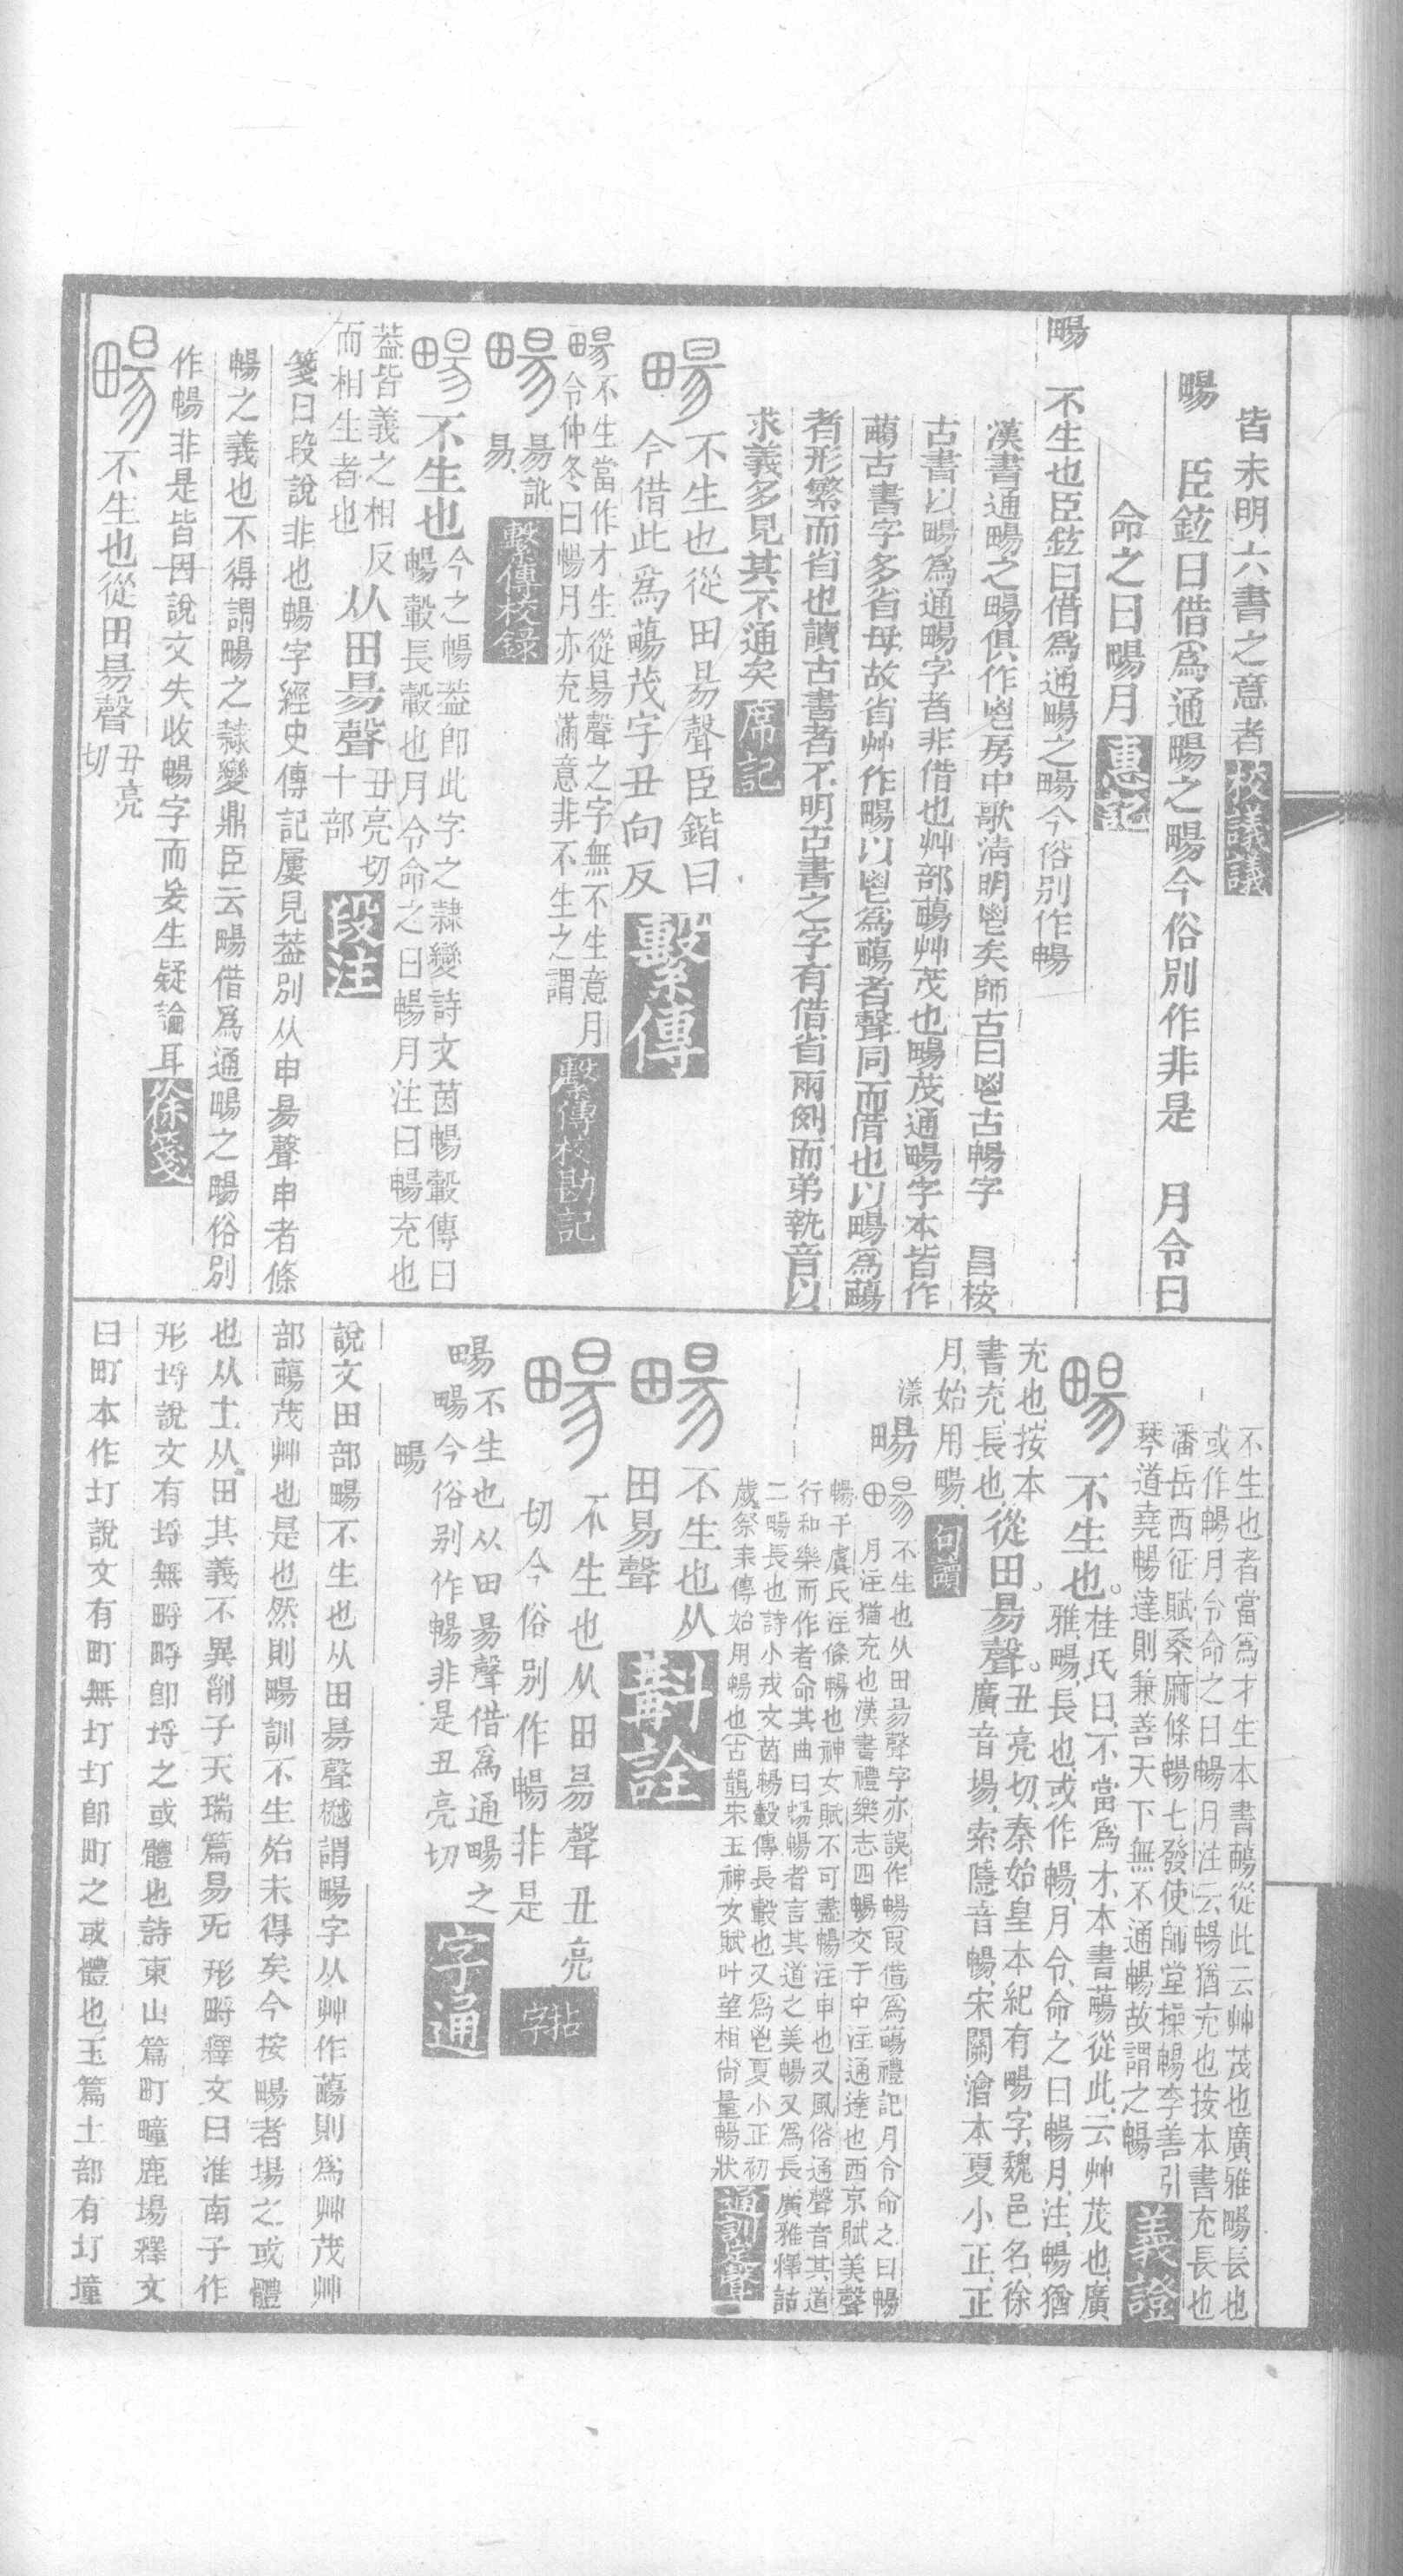 皆未明六書之意者校議議
畼　臣鉉曰借爲通畼之畼今俗別作非是　月令曰
命之曰畼月惠記
畼　不生也臣鉉曰借爲通畼之畼今俗別作暢
漢書通畼之畼俱作鬯房中歌淸明鬯矣師古曰鬯古暢字　昌桉
古書以畼爲通畼字者非借也艸部䔥艸茂也畼茂通畼字本皆作
古書字多省母故省艸作畼以鬯爲者聲同而借也以畼爲
者形繁而省也讀古書者不明古書之字有借省兩例而弟執音以
求義多見其不通矣席記
畼不生也從田昜聲臣鍇曰
今借此爲茂字丑向反繫傳
畼不生當作才生從昜聲之字無不生意月
令仲冬曰暢月亦充滿意非不生之謂繫傳校勘記
畼昜訛
易繫傳校錄
畼不生也今之暢葢卽此字之隷變詩文茵暢轂傳曰
暢轂長轂也月令命之曰暢月注曰暢充也
葢皆義之相反
而相生者也从田昜聲丑亮切
十部段注
箋曰段說非也暢字經史傳記屢見葢別从申昜聲申者條
暢之義也不得謂畼之隷變鼎臣云畼借爲通畼之畼俗別
作暢非是皆因說文失收暢字而妄生疑論耳徐箋
畼不生也從田昜聲丑亮
切
不生也者當爲才生本書從此云艸茂也廣雅畼長也
或作暢月令命之曰暢月注云暢猶充也按本書充長也
潘岳西征賦桑麻條暢七發使師堂操暢李善引
琴道堯暢達則兼善天下無不通暢故謂之暢義證
畼不生也。桂氏曰、不當爲才、本書從此、云艸茂也、廣
雅、畼、長也、或作暢、月令、命之曰暢月、注、暢猶
充也、按本
書、充、長也、從田昜聲。丑亮切、秦始皇本紀有畼字、魏邑名、徐
廣、音場、索隱、音暢、宋關澮本夏小正、正
月、始用畼、句讀
漾畼畼不生也从田昜聲字亦誤作暢（叚借）爲禮記月令命之曰暢
月注猶充也漢書禮樂志四暢交于中注通達也西京賦美聲
暢于虞氏注條暢也神女賦不可盡暢注申也又風俗通聲音其道
行和樂而作者命其曲曰暢暢者言其道之美暢又爲長廣雅釋詁
二畼長也詩小戎文茵暢轂傳長轂也又爲鬯夏小正初
歲祭耒傳始用暢也（古韻）宋玉神女賦叶望相尙量暢狀通訓定聲
畼不生也从
田昜聲斠詮
畼不生也从田昜聲丑亮
切今俗別作暢非是拈字
畼不生也从田昜聲借爲通畼之
畼今俗別作暢非是丑亮切字通
畼
說文田部畼不生也从田昜聲樾謂畼字从艸作則爲艸茂艸
部茂艸也是也然則畼訓不生殆未得矣今按畼者場之或體
也从土从田其義不異劉子天瑞篇易旡形畤釋文曰淮南子作
形埒說文有埒無畤畤卽埒之或體也詩東山篇町疃鹿場釋文
曰町本作圢說文有町無圢圢卽町之或體也玉篇土部有圢墥